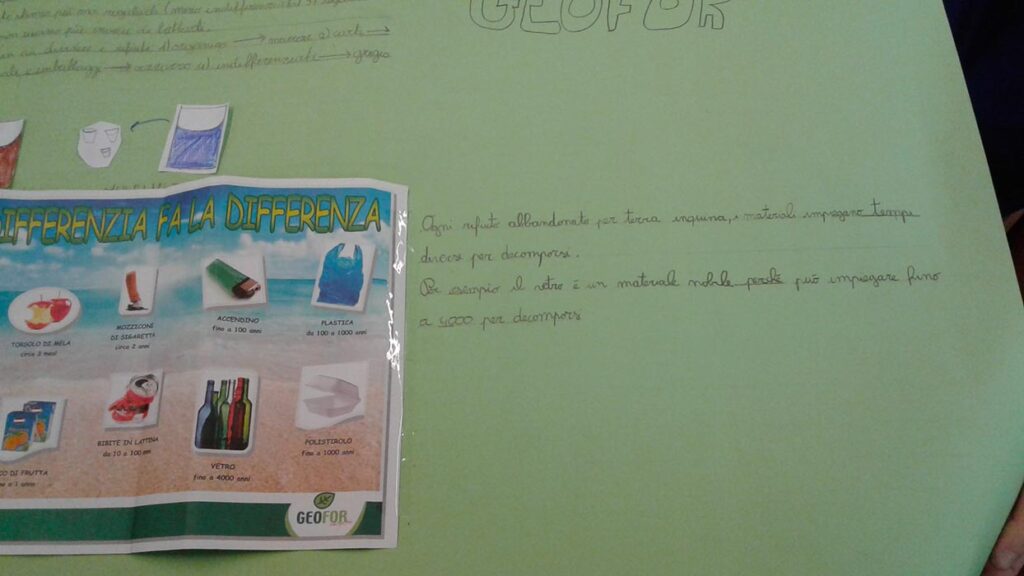 GEOFOR
più
organico → marrone 2) carta →
imballaggi → azzurro 4) indifferenziato → grigio
DIFFERENZIA FA LA DIFFERENZA
TORSOLO DI MELA
circa 3 mesi
MOZZICONI
DI SIGARETTA
circa 2 anni
ACCENDINO
fino a 100 anni
PLASTICA
da 100 a 1000 anni
CO DI FRUTTA
no a 1 anno
BIBITE IN LATTINA
da 10 a 100 anni
VETRO
fino a 4000 anni
POLISTIROLO
fino a 1000 anni
GEOFOR
Ogni rifiuto abbandonato per terra inquina, i materiali impiegano tempi
diversi per decomporsi.
Per esempio il vetro è un materiale nobile perché può impiegare fino
a 4000 per decompors